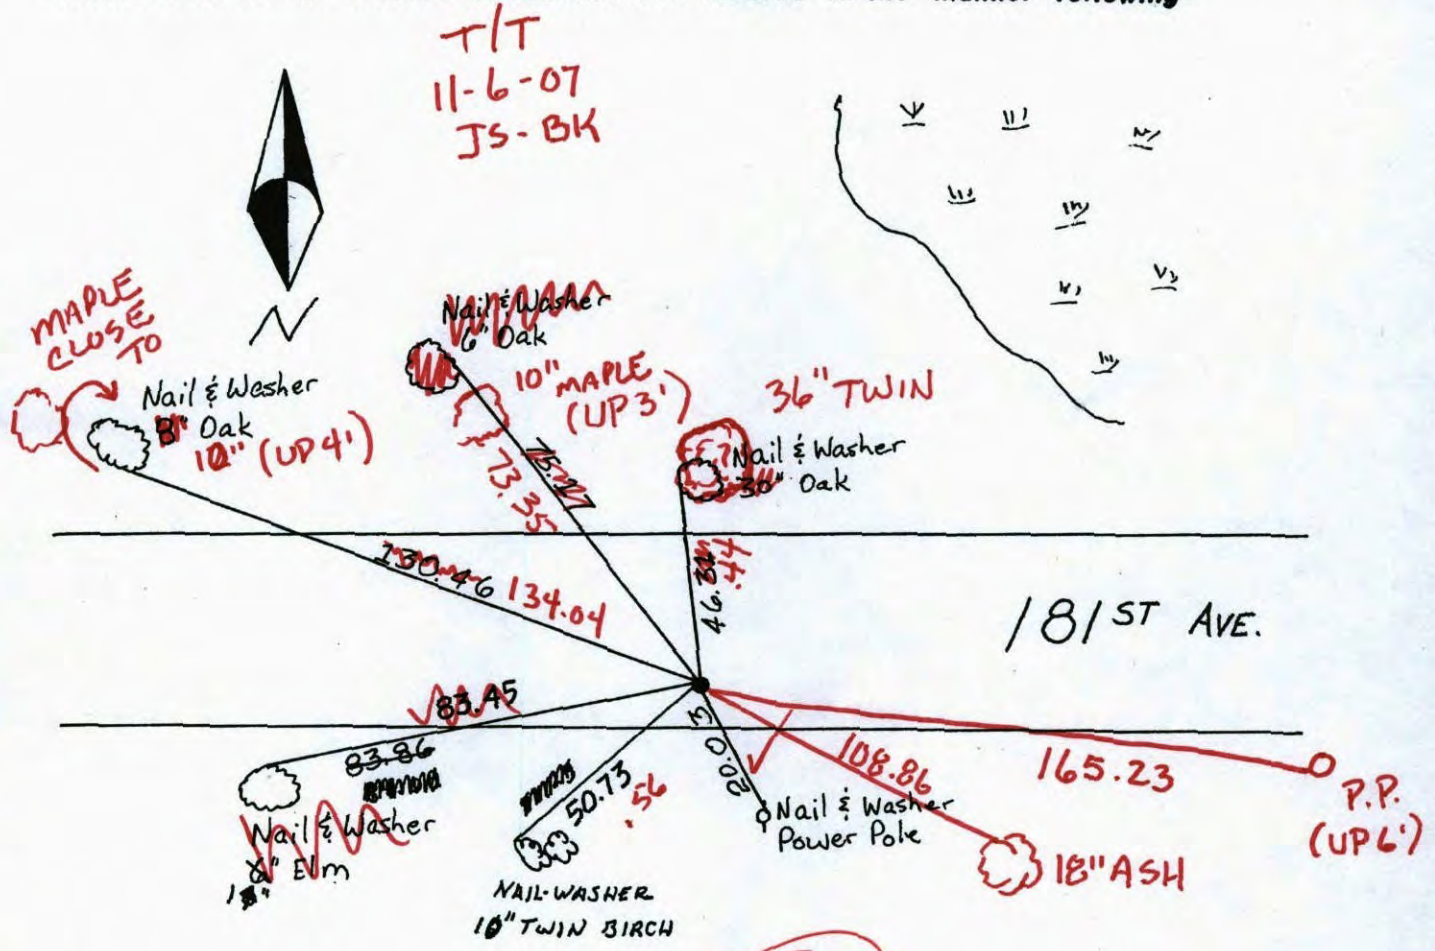 manner following
T/T
11-6-07
JS-BK
N
MAPLE
CLOSE
TO
Nail & Washer
8" Oak
10" (UP 4')
Nail & Washer
6" Oak
10" MAPLE
(UP 3')
36" TWIN
Nail & Washer
30" Oak
75.27
73.35
130.46 134.04
46.34
.44
181ST AVE.
83.45
83.86
Nail & Washer
Elm
50.73
.56
NAIL-WASHER
10" TWIN BIRCH
20.03
Nail & Washer
Power Pole
108.86
18" ASH
165.23
P.P.
(UP 6')